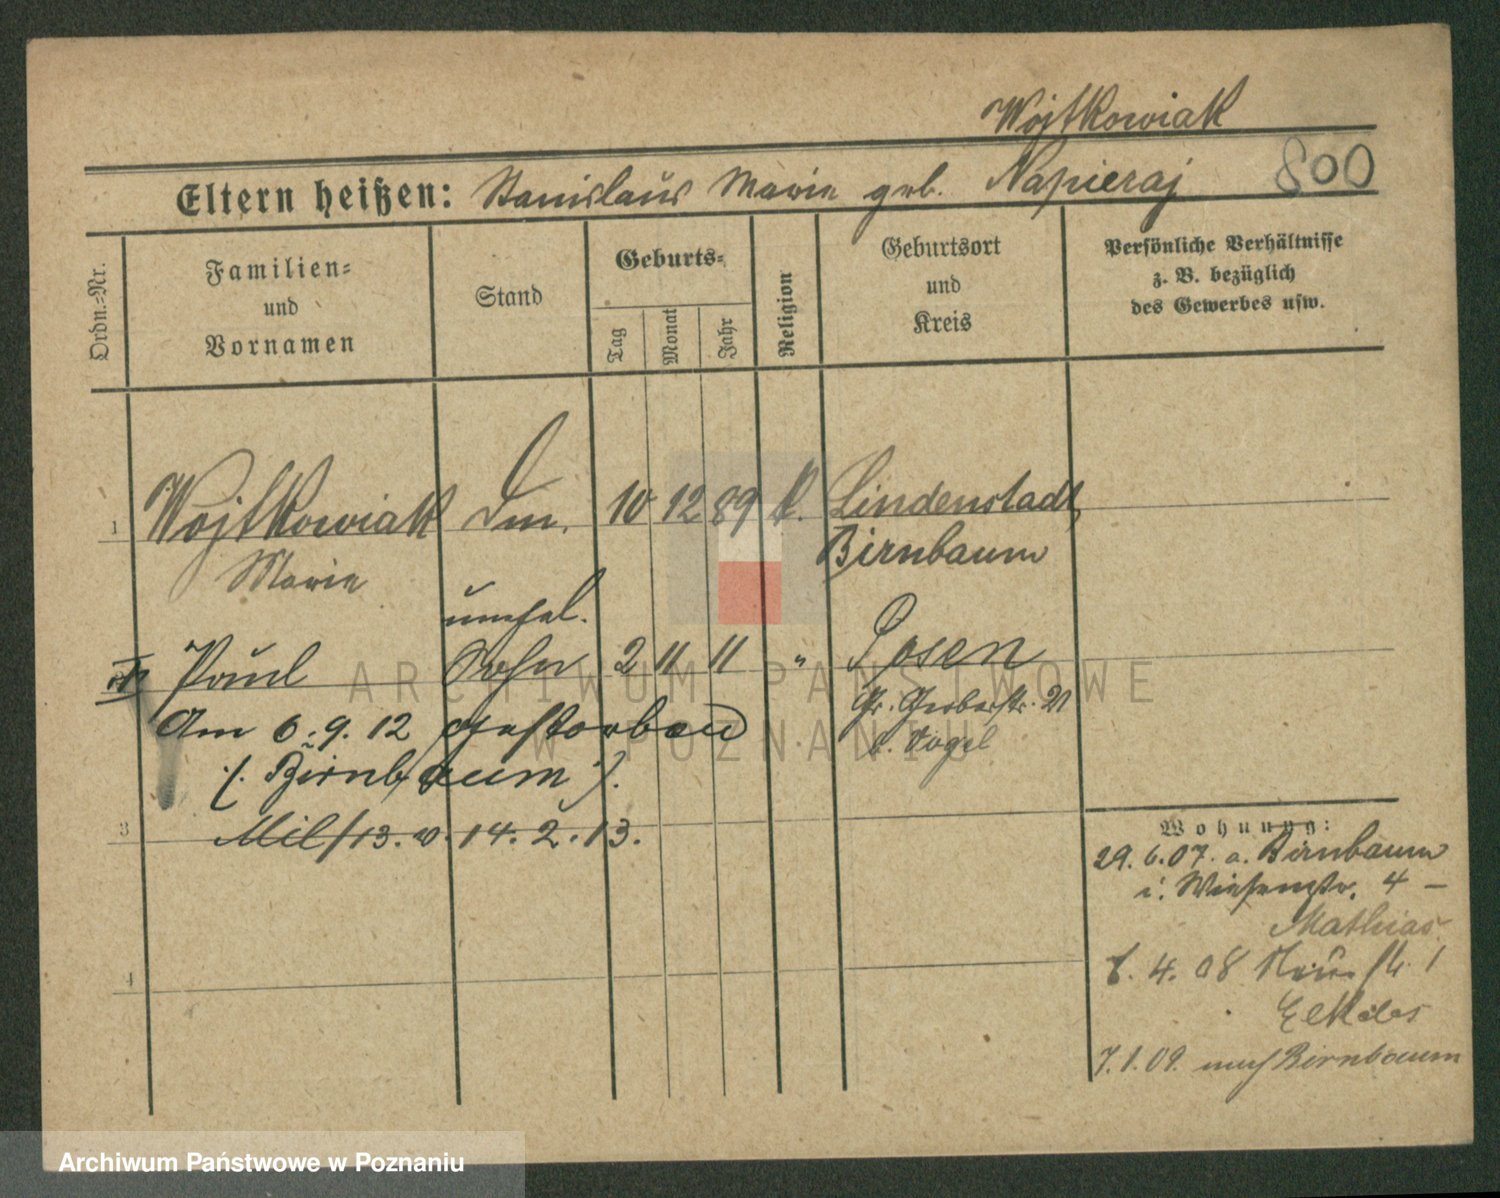 Wojtkowiak
Eltern heißen: Stanislaus Marie geb. Napieraj 800
Ordn.=Nr.
Familien=
und
Vornamen
Stand
Geburts=
Tag
Monat
Jahr
Religion
Geburtsort
und
Kreis
Persönliche Verhältnisse
z. B. bezüglich
des Gewerbes usw.
1 Wojtkowiak 10 12 89 k. Lindenstadt
Marie Birnbaum
unehel.
Paul Sohn 2 11 11 " Posen
Gr. Gerberstr. 21
Am 6.9.12 gestorben b. Vogel
(. Birnbaum .).
3 Mil/13. v. 14.2.13.
4
Wohnung:
29.6.07. a. Birnbaum
i. Wiesenstr. 4 —
Mathias
4. 08 1
7.1.09. nach Birnbaum
ARCHIWUM PAŃSTWOWE
W POZNANIU
Archiwum Państwowe w Poznaniu